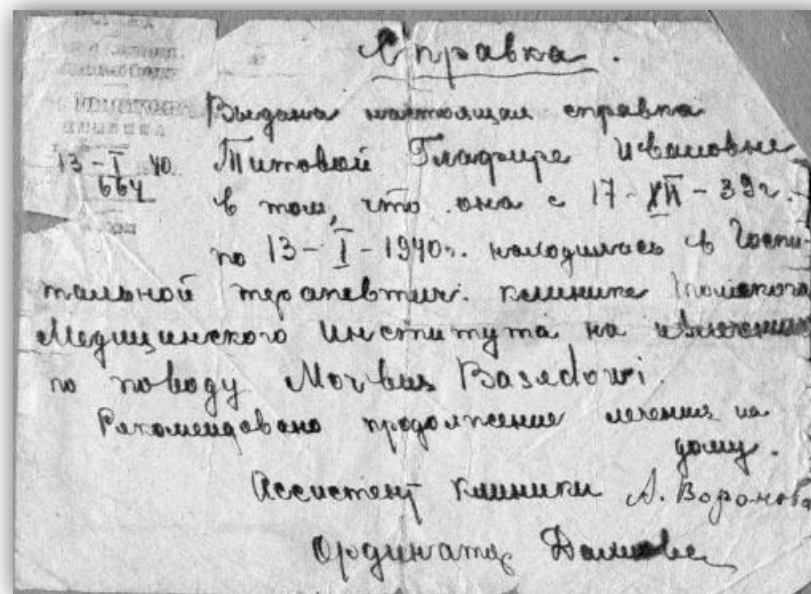 Справка.
Выдана настоящая справка
13-I 40
664
Титовой Глафире Ивановне
в том, что она с 17-XII-39г.
по 13-I-1940г. находилась в Госпи-
тальной терапевтич. клинике Томского
Медицинского Института на излечении
по поводу Morbus Basedowi.
Рекомендовано продолжение лечения на
дому.
Ассистент клиники А. Воронова
Ординатор